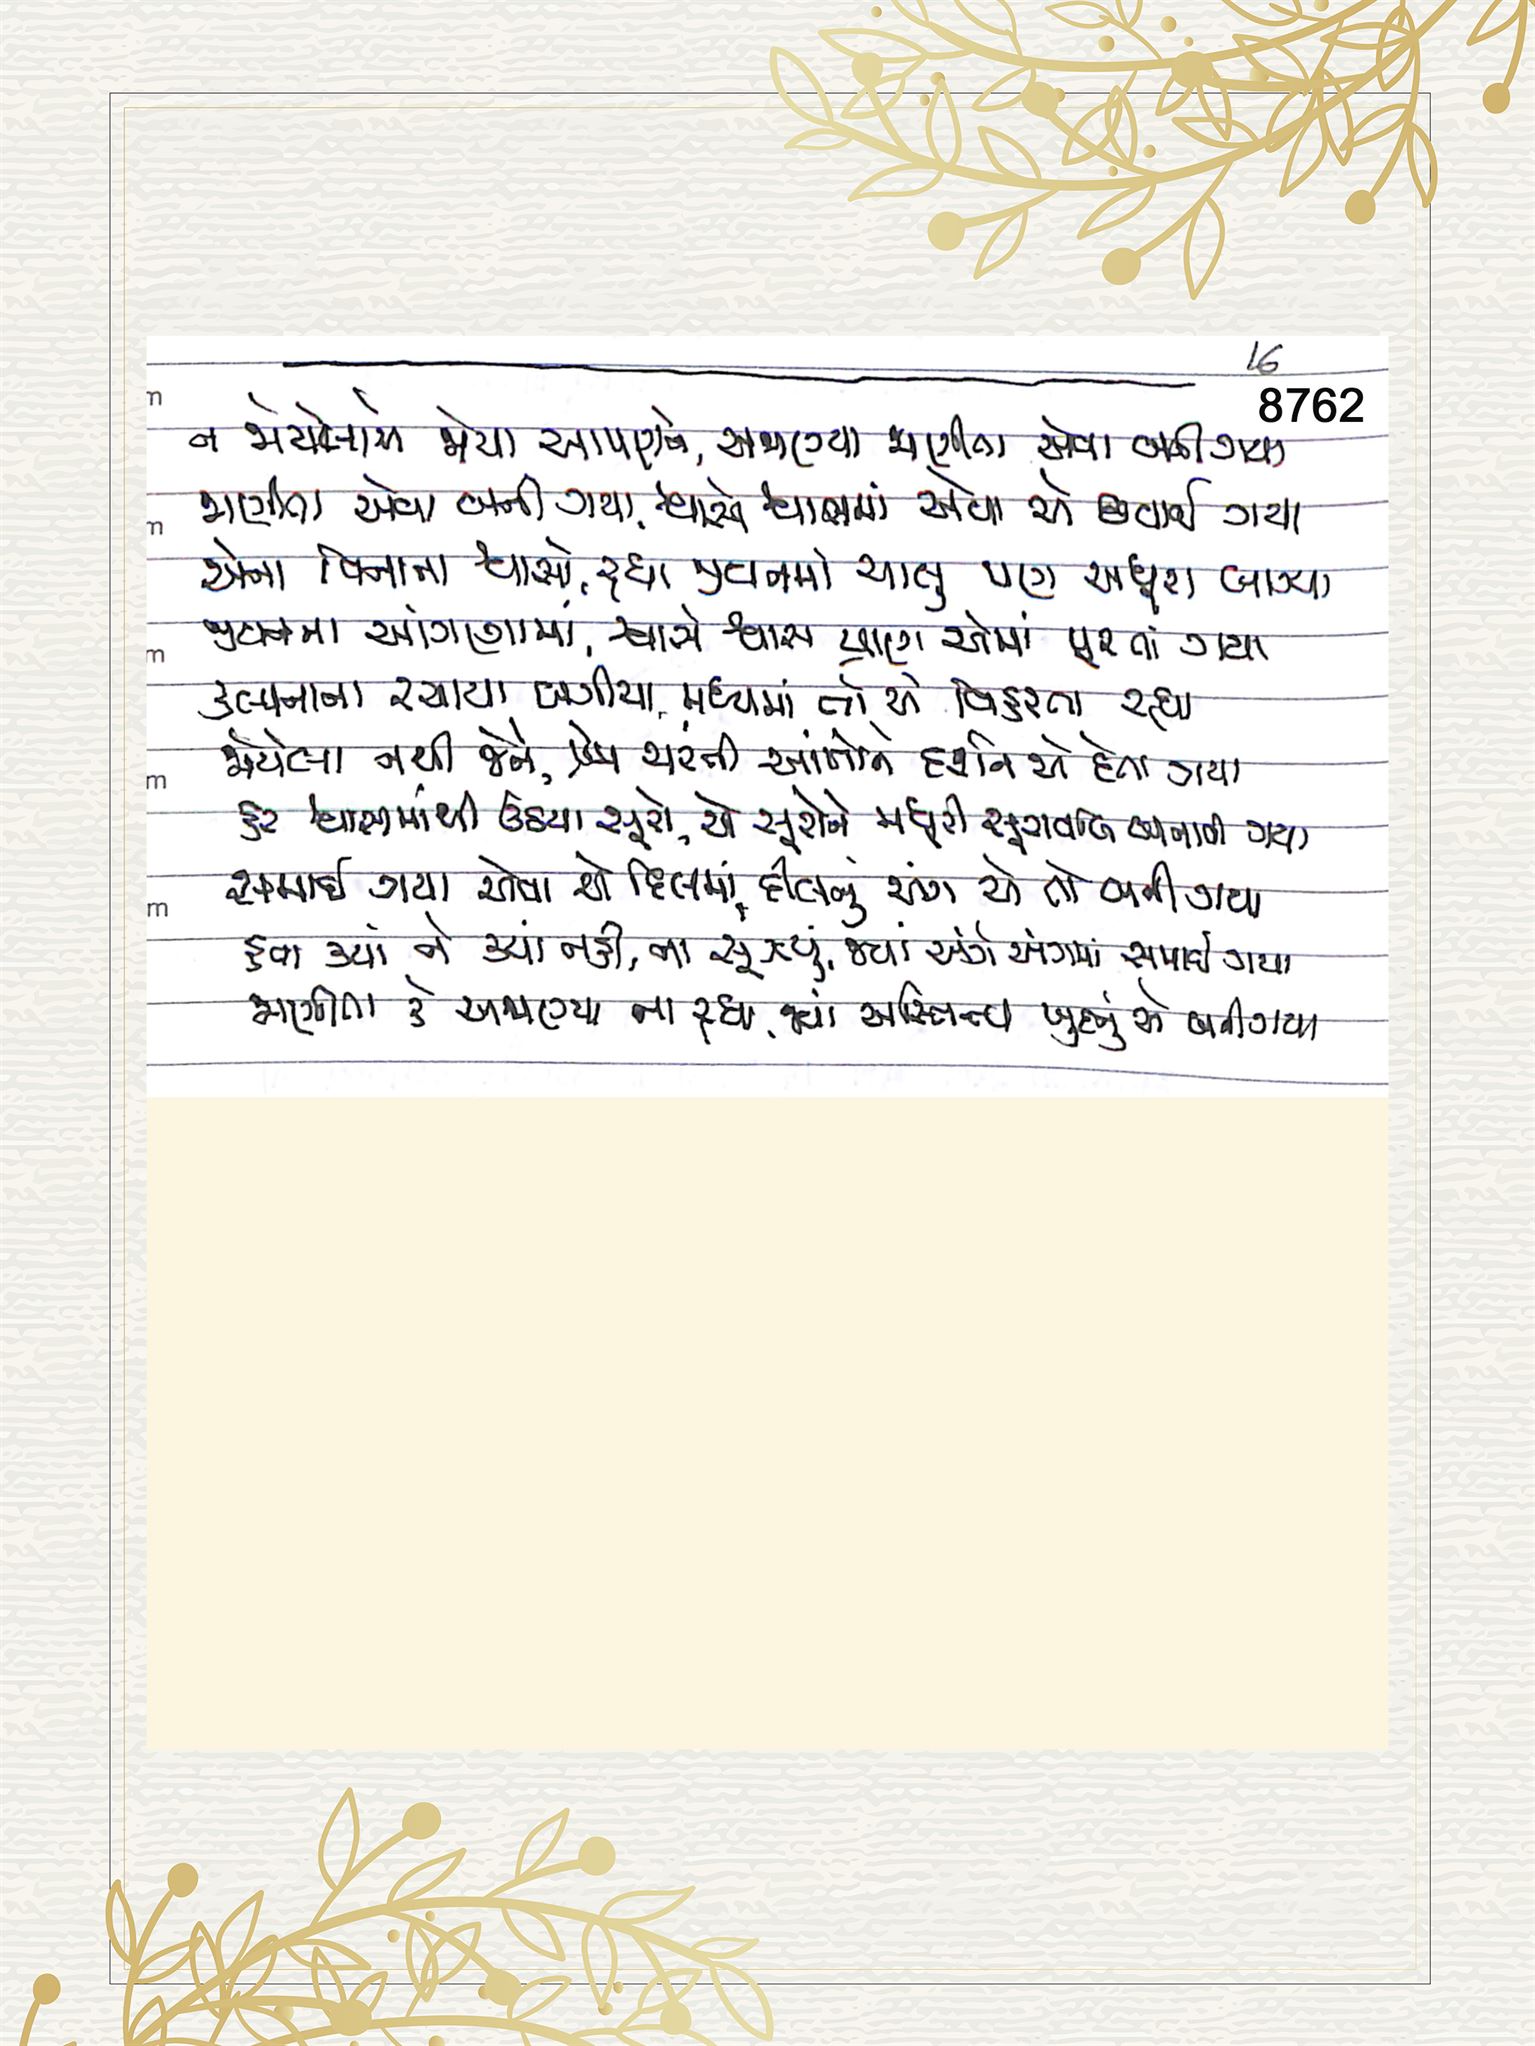 16
8762
ન જોયેલાએ જોયા આપણને, અજાણ્યા જાણીતા એવા બની ગયા
જાણીતા એવા બની ગયા, શ્વાસે શ્વાસમાં એવા એ છવાઈ ગયા
એના વિનાના શ્વાસો, રહ્યા જીવનમાં ચાલુ પણ અધૂરા લાગ્યા
જીવનના આંગણામાં, શ્વાસે શ્વાસ પ્રાણ એમાં પૂરતાં ગયા
કલ્પનાના રચાયા બગીચા, મધ્યમાં તો એ વિહરતા રહ્યા
જોયેલા નથી જેને, પ્રેમ ભરેલી આંખોને દર્શન એ દેતા ગયા
હર શ્વાસમાંથી ઉઠયા સૂરો, એ સૂરોને મધૂરી સૂરાવલિ બનાવી ગયા
સમાઈ ગયા એવા એ દિલમાં, દીલનું અંગ એ તો બની ગયા
હવા ક્યાં ને ક્યાં નહી, ના સૂઝ્યું, જ્યાં અંગે અંગમાં સમાઈ ગયા
જાણીતા કે અજાણ્યા ના રહ્યા, જ્યાં અસ્તિત્વ ખુદનું એ બની ગયા
m
m
m
m
m